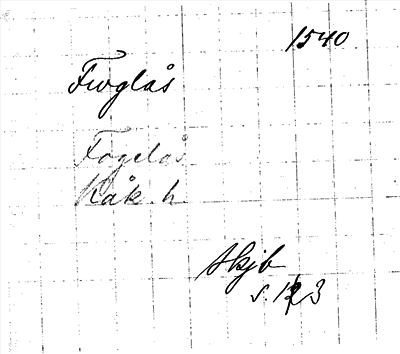 1540
Fwglås
Fogelås
Kåk. h
Skjb
s. 123